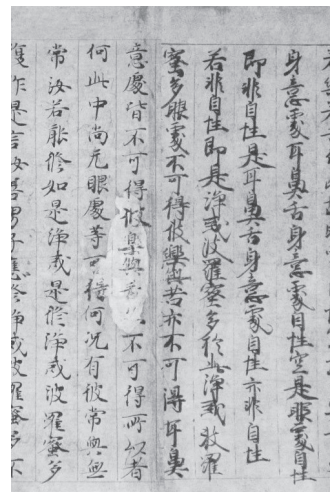 身意處耳鼻舌身意處自性空是非處自性
即非自性是耳鼻舌身意處自性亦非自性
若非自性即是淨戒波羅蜜多於此淨戒波羅
蜜多眼處不可得彼樂與苦亦不可得耳鼻
意處皆不可得彼樂與苦不可得所以者
何此中尚无眼處等可得何況有彼常與無
常汝若能修如是淨戒是修淨戒波羅蜜多
復作是言汝善男子應修淨戒波羅蜜多不